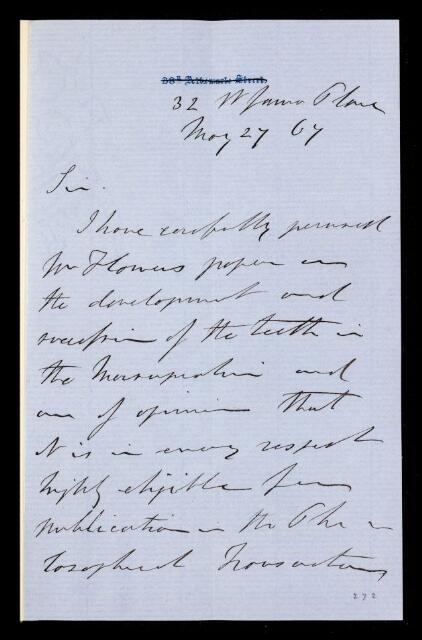 38A Albemarle Street.
32 St James Place
May 27 67
Sir.
I have carefully perused
Mr Flowers paper on
the development and
succession of the teeth in
the Marsupialia and
am of opinion that
it is in every respect
highly eligible for
publication in the Phi=
losophical Transactions
272